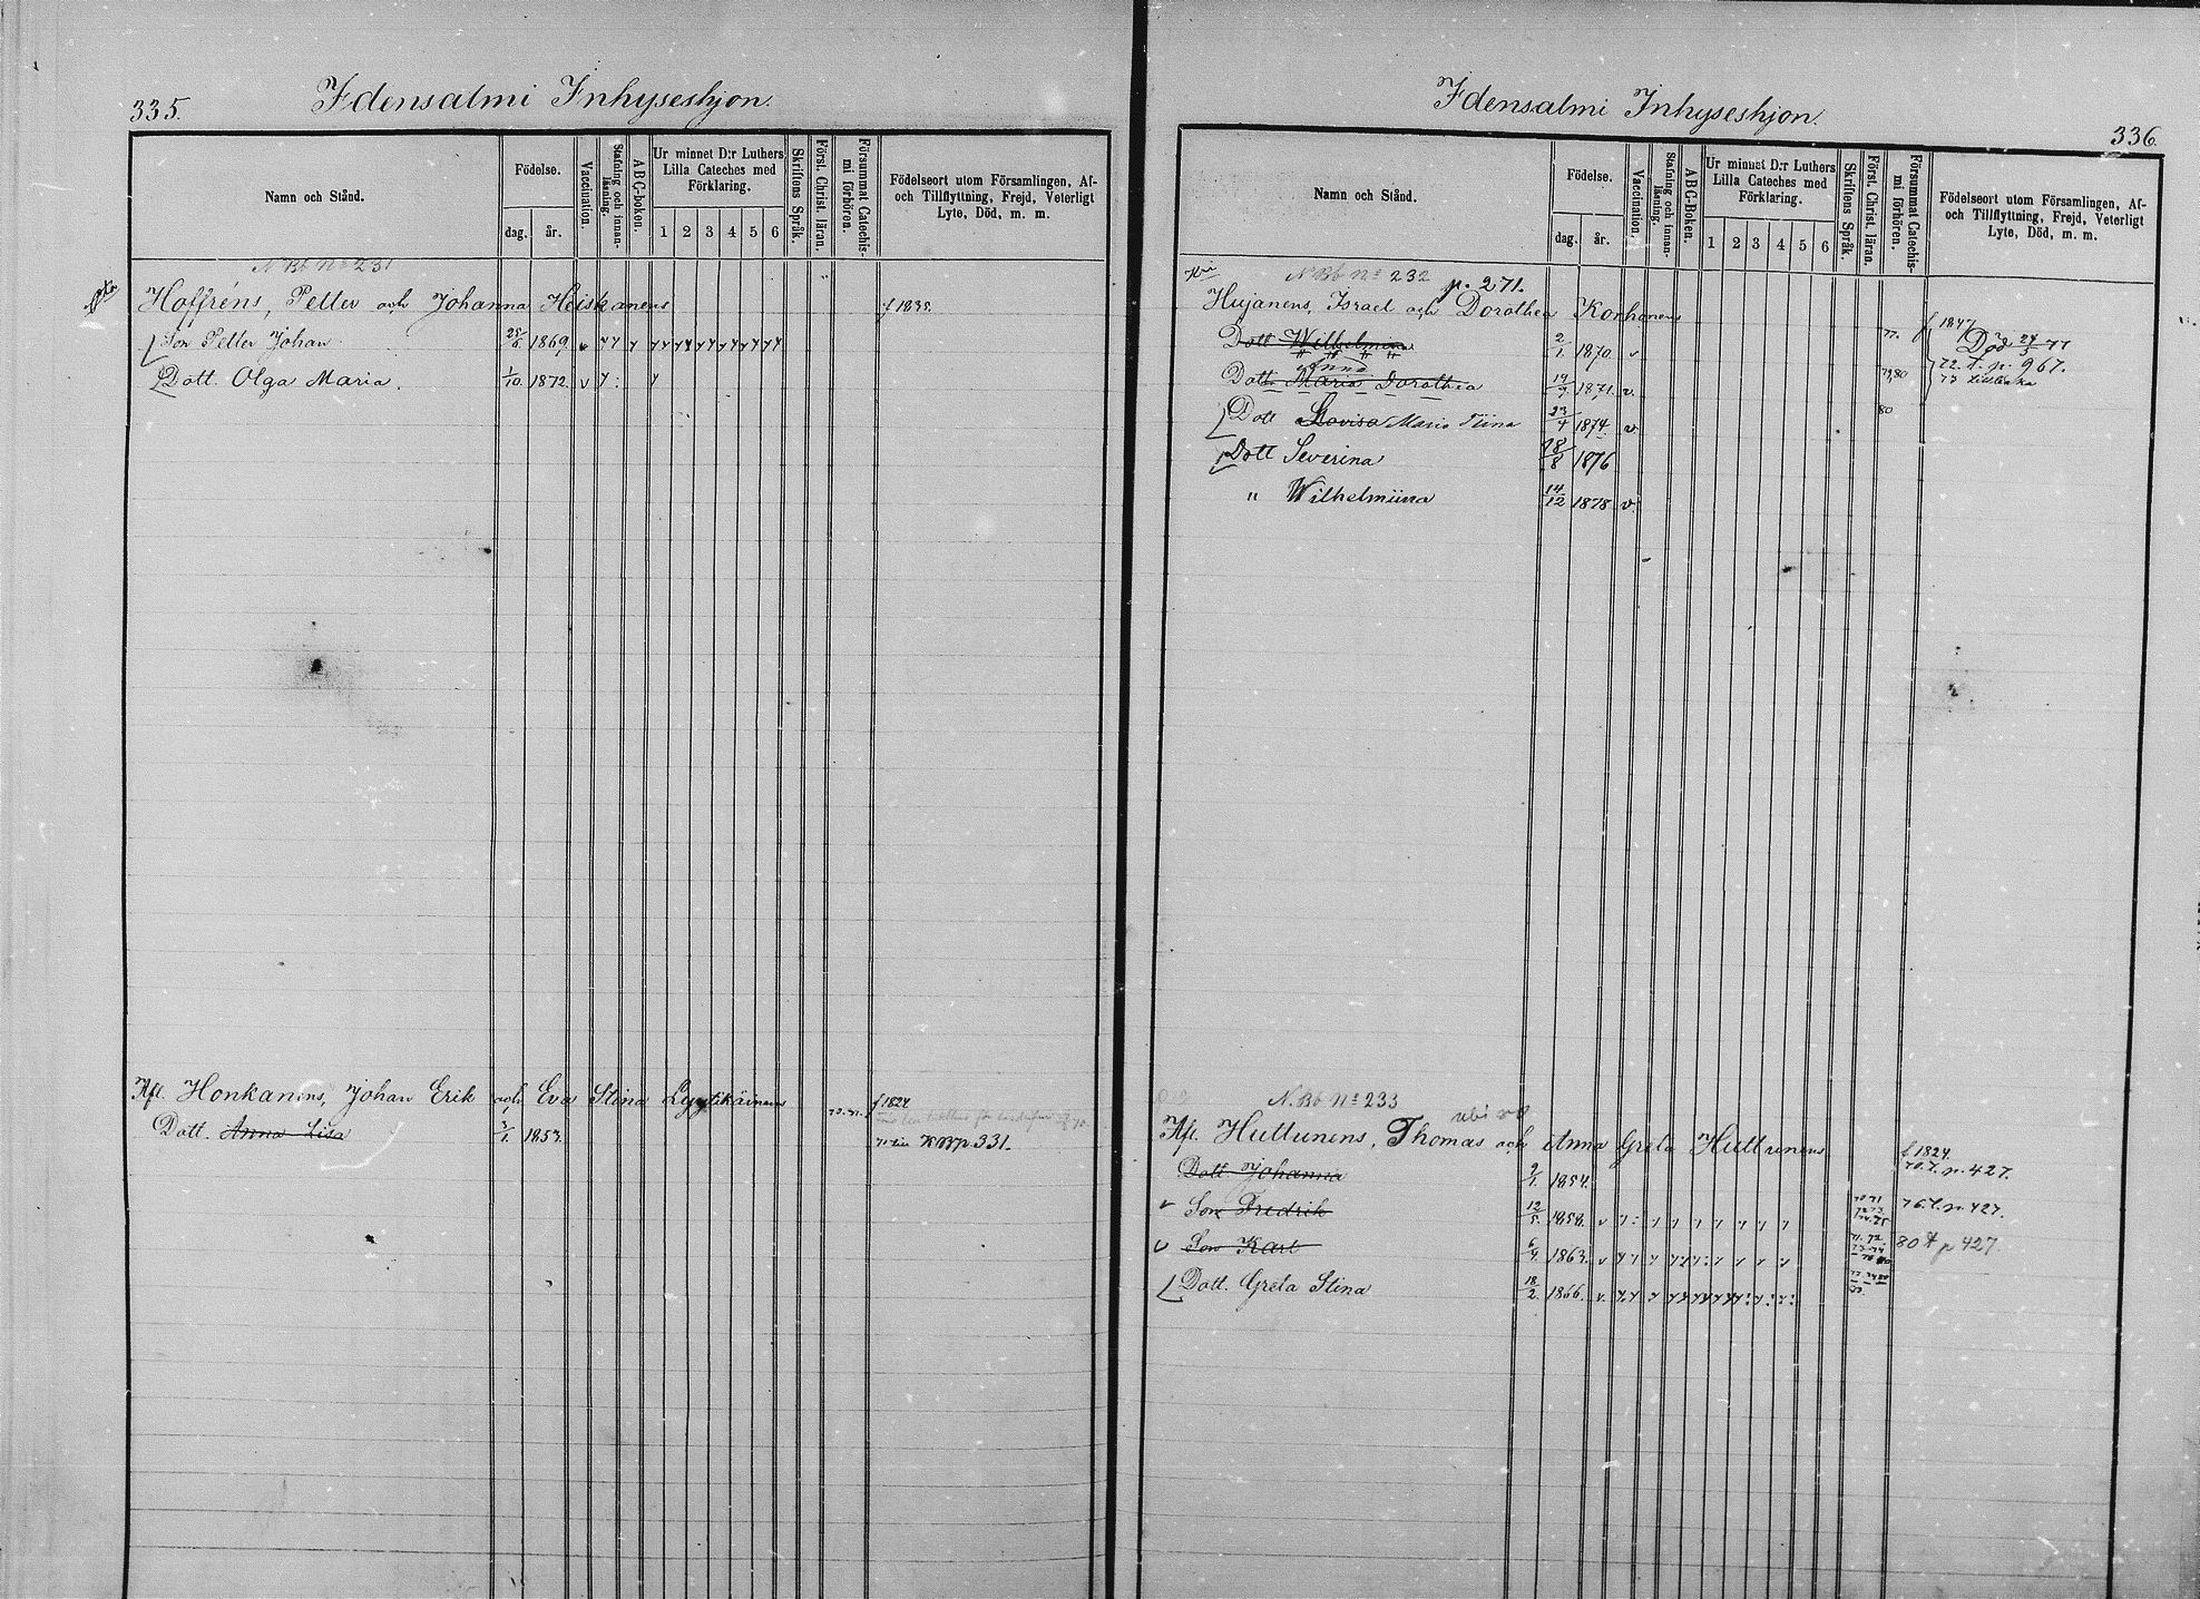 335.
Idensalmi Inhyseshjon.
Namn och Stånd.
Födelse.
dag.
år.
Vaccination.
Stafning och innanläsning.
ABC-boken.
Ur minnet D:r Luthers Lilla Cateches med Förklaring.
1 2 3 4 5 6
Skriftens Språk.
Först. Christ. läran.
Försummat Catechismi förhören.
Födelseort utom Församlingen, Af- och Tillflyttning, Frejd, Veterligt Lyte, Död, m. m.
N Bb No 231
Hoffréns, Petter och Johanna Heiskanens f 1835.
Son Petter Johan 25/6 1869 v
Dott. Olga Maria. 1/10. 1872. v
Afl. Honkanens, Johan Erik och Eva Stina Lyytikäinens f 1824
Dott. Anna Lisa 3/1. 1853. 331.
Idensalmi Inhyseshjon.
336.
Namn och Stånd.
Födelse.
dag.
år.
Vaccination.
Stafning och innanläsning.
ABC-Boken.
Ur minnet D:r Luthers Lilla Cateches med Förklaring.
1 2 3 4 5 6
Skriftens Språk.
Först. Christ. läran.
Försummat Catechismi förhören.
Födelseort utom Församlingen, Af- och Tillflyttning, Frejd, Veterligt Lyte, Död, m. m.
N Bb No 232 p. 271.
Hujanens, Israel och Dorothea Korhonens f 1847
Dott Wilhelmina 2/1. 1870. v 77. Död 24/3 77
Anna
Dott Maria Dorothea 14/9. 1871. v. 79,80 72. T. p. 967.
Dott Lovisa Maria Tiina 23/4 1874. v. 80
Dott Severina 18/8 1876
" Wilhelmiina 14/12 1878 v.
N. Bb No 233
Afl. Huttunens, Thomas och Anna Greta Huttunens f 1824.
Dott. Johanna 9/1. 1854. 70. T. p. 427.
v Son Fredrik 12/5. 1858. v 76. T. p. 427.
v Son Karl 6/4. 1863. v 80 T p 427.
Dott. Greta Stina 18/2. 1866. v.